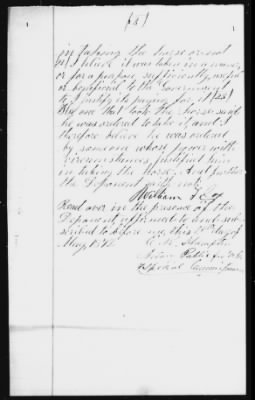 (5)
in taking the horse or not
I believe it was taken in a manner,
or for a purpose sufficiently useful
or beneficial to the Government
to justify its paying for it (23)
The one that took the horse said
he was ordered to take it and I
therefore believe he was ordered
by someone whose power with
circumstances justified him
in taking the horse. And further
the Deponent saith not.
William
Read over in the presence of the
Deponent, affirmed to and sub-
scribed to before me, this day of
May 187
Notary Public for
& Special Commissioner